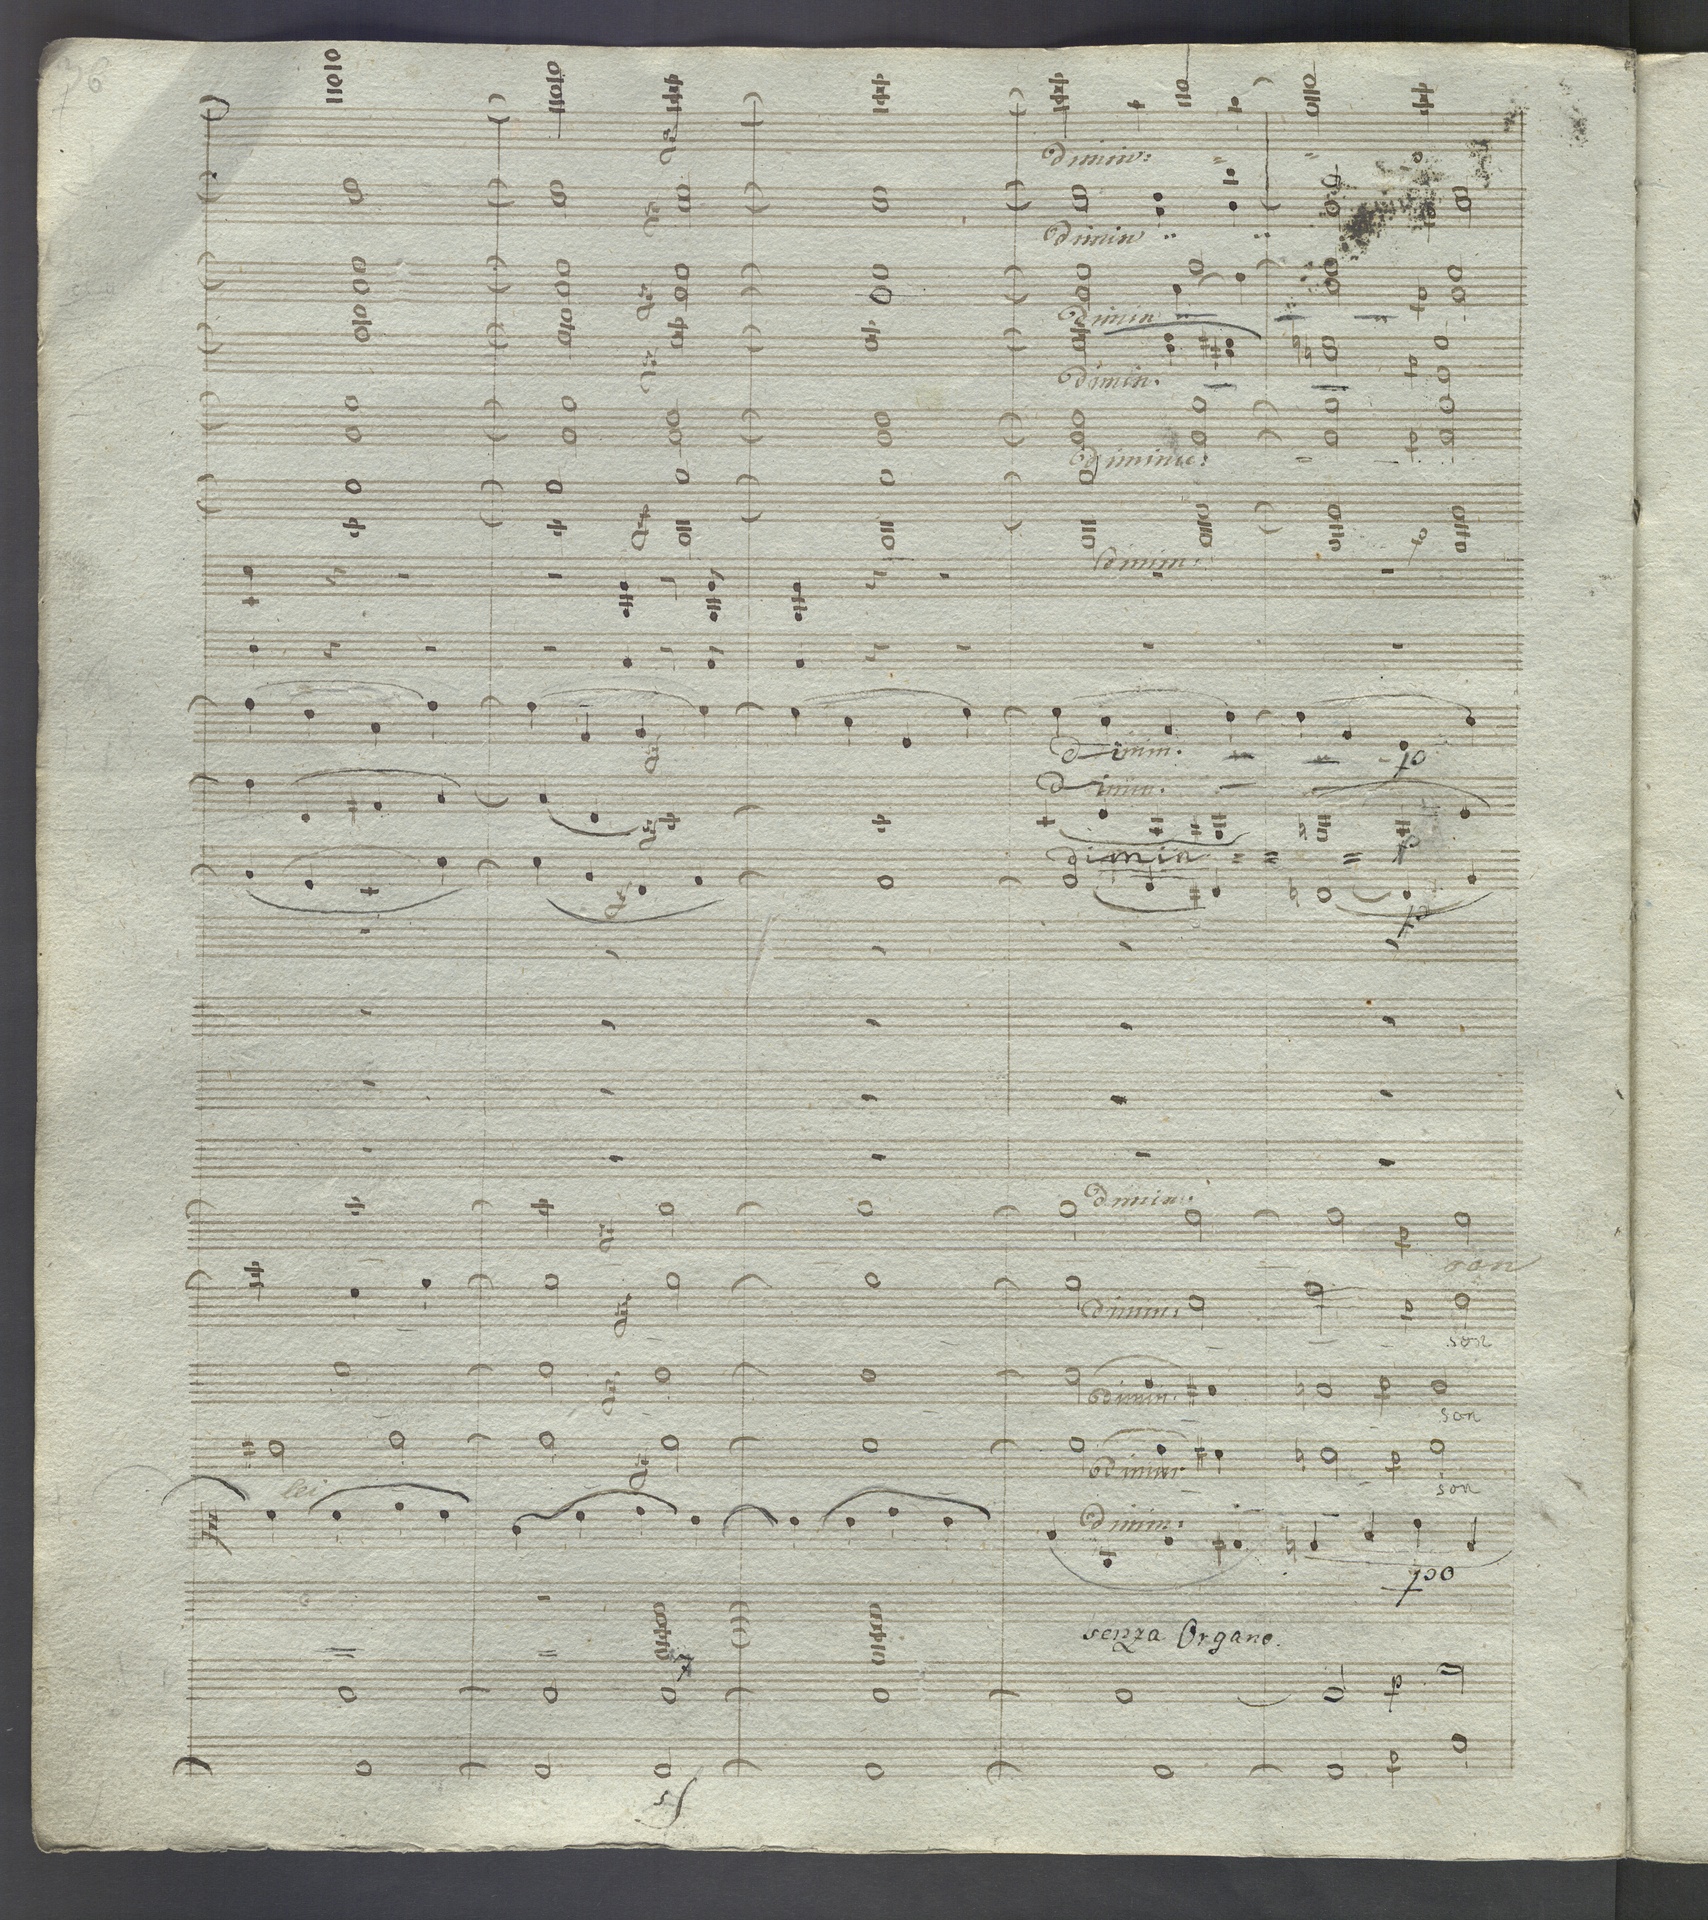 76
dimin:
dimin
dimin
dimin.
diminu:
dimin:
dimin.
p
dimin.
dimin
p
p
dimin:
son
dimin:
son
dimin.
son
dimin
lei
son
dimin:
po
senza Organo.
sf